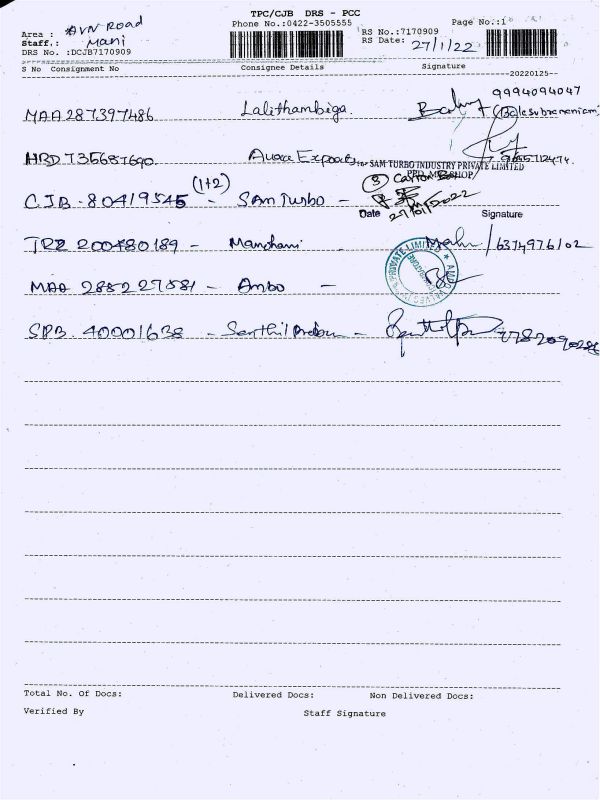 TPC/CJB DRS - PCC
Phone No.:0422-3505555
Page No.:1
Area : AVN Road
Staff.: Mani
DRS No. :DCJB7170909
RS No.:7170909
RS Date: 27/1/22
S No Consignment No Consignee Details Signature
20220125
9994094047
MAA 287397486 Lalithambiga (Balesubramaniam)
9655712474
for SAM TURBO INDUSTRY PRIVATE LIMITED
(3) Carton Box
CJB - 80419545 (1+2) - SAM Turbo -
Date 27/01/2022 Signature
TRZ 200480189 - Manchani - / 6374976102
PRIVATE LIMITED
MAA 288227581 - Ambo -
SPB. 40001638 -
Total No. Of Docs: Delivered Docs: Non Delivered Docs:
Verified By Staff Signature